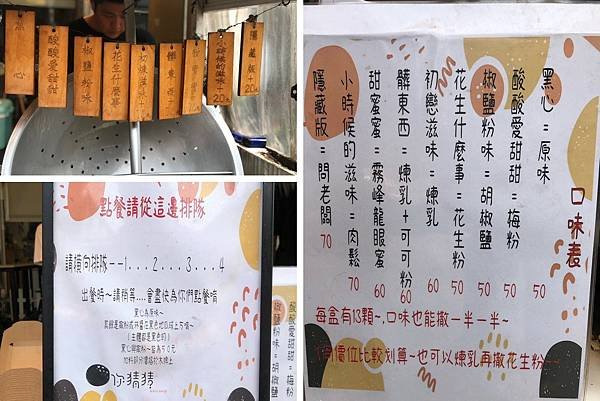 黑心
酸酸愛甜甜
椒鹽粉味
花生什麼事
初戀滋味+10
髒東西
小時候的滋味+20
隱藏版+20
點餐請從這邊排隊
請橫向排隊--1...2...3...4
出餐時~請稍等....會盡快為你們點餐唷
黑心為原味~
(主體都是黑色的)
你猜猜
酸酸愛甜甜=梅粉
椒鹽粉味=胡椒鹽
口味表
黑心=原味 50
酸酸愛甜甜=梅粉 50
椒鹽粉味=胡椒鹽 50
花生什麼事=花生粉 50
初戀滋味=煉乳 60
髒東西=煉乳+可可粉 60
甜蜜蜜=霧峰龍眼蜜 60
小時候的滋味=肉鬆 70
隱藏版=問老闆 70
每盒有13顆~,口味也能撒一半一半~
價位比較划算~也可以煉乳再撒花生粉~~